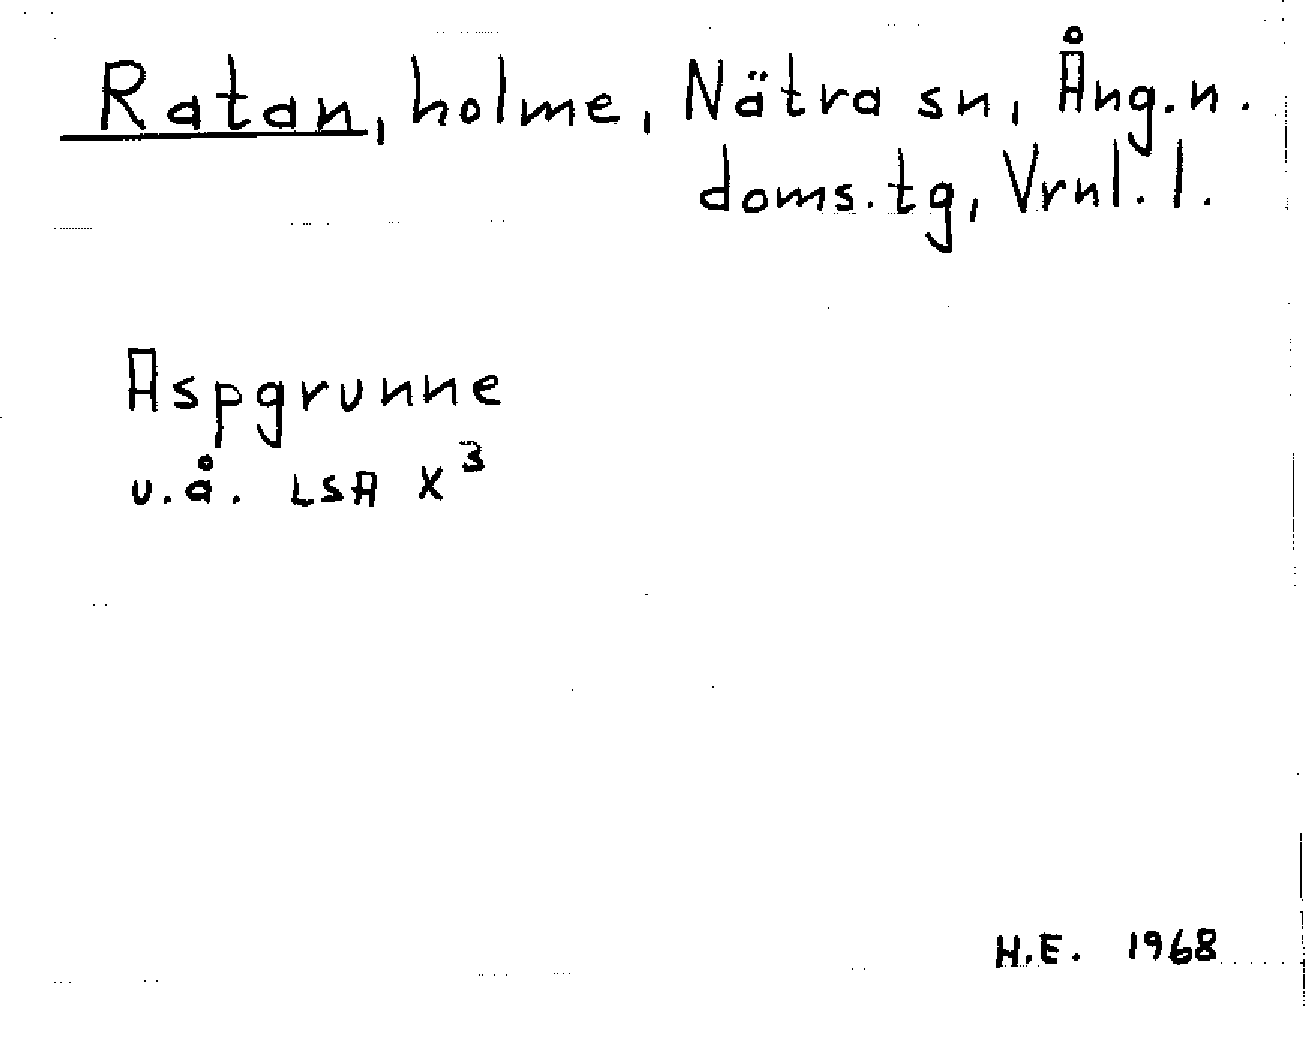 Ratan, holme, Nätra sn, Ång.n.
doms.tg, Vrnl. l.
Aspgrunne
u.å. LSA X³
H.E. 1968